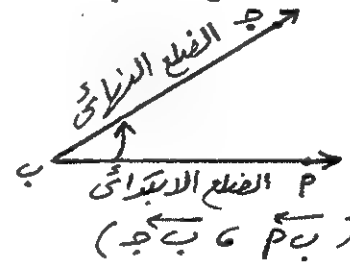 جـ
الضلع النهائى
ب
الضلع الابتدائى
م
( ب م ، ب جـ )